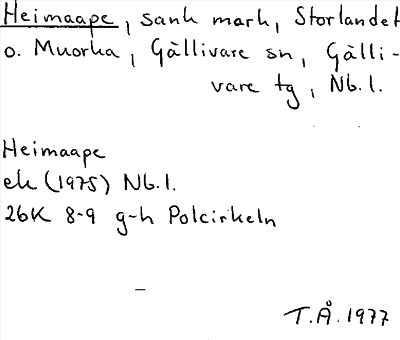 Heimaape, sank mark, Storlandet
o. Muorka, Gällivare sn, Gälli-
vare tg, Nb. l.
Heimaape
ek (1975) Nb. l.
26K 8-9 g-h Polcirkeln
–
T.Å. 1977